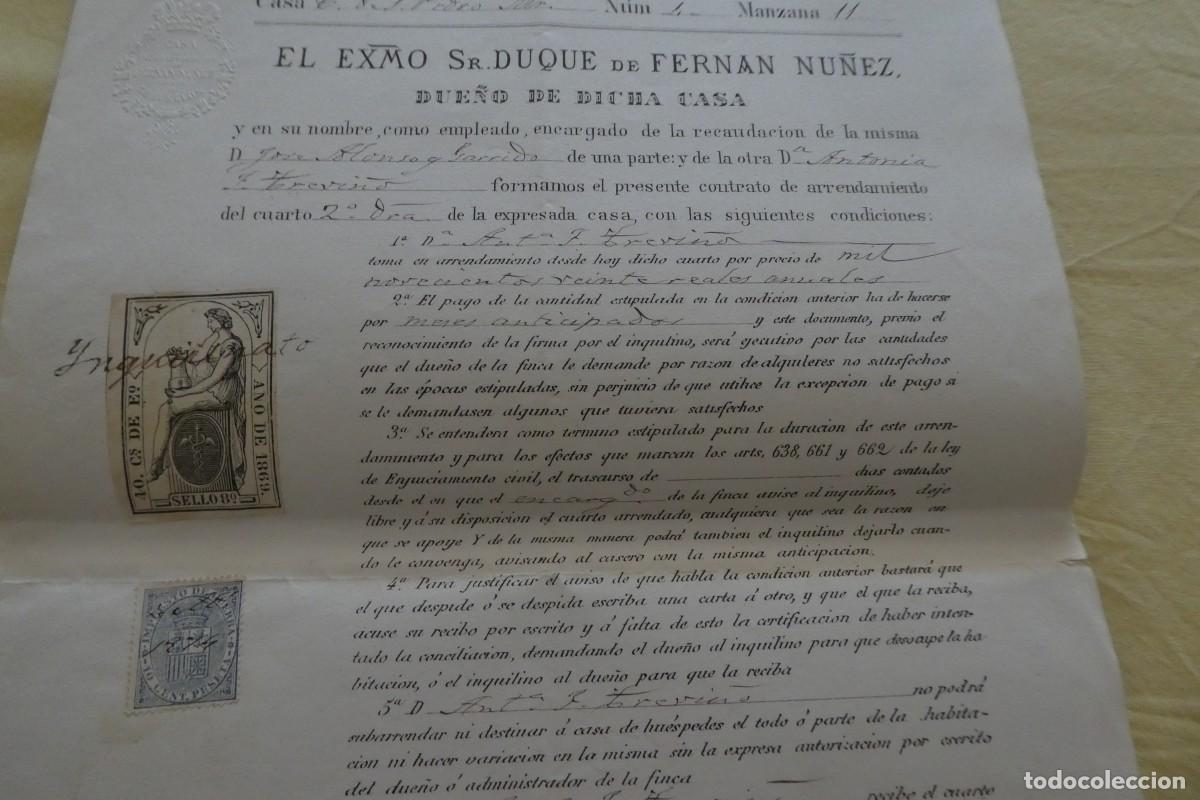 Casa C. de S. Pedro Núm 4 Manzana 11
EL EXMO SR. DUQUE DE FERNAN NUÑEZ,
DUEÑO DE DICHA CASA
y en su nombre, como empleado, encargado de la recaudacion de la misma
D. Jose Alonso y Garrido de una parte: y de la otra Dª Antonia
F. Treviño formamos el presente contrato de arrendamiento
del cuarto 2º dra. de la expresada casa, con las siguientes condiciones:
1ª Dª Antª F. Treviño
toma en arrendamiento desde hoy dicho cuarto por precio de mil
novecientos veinte reales anuales
2ª El pago de la cantidad estipulada en la condicion anterior ha de hacerse
por meses anticipados y este documento, previo el
reconocimiento de la firma por el inquilino, será ejecutivo por las cantidades
que el dueño de la finca le demande por razon de alquileres no satisfechos
en las épocas estipuladas, sin perjuicio de que utilice la excepcion de pago si
se le demandasen algunos que tuviera satisfechos
3ª Se entendera como termino estipulado para la duracion de este arren-
damiento y para los efectos que marcan los arts, 638, 661 y 662 de la ley
de Enjuciamiento civil, el trascurso de dias contados
desde el en que el encargdo de la finca avise al inquilino, deje
libre y á su disposicion el cuarto arrendado, cualquiera que sea la razon en
que se apoye Y de la misma manera podrá tambien el inquilino dejarlo cuan-
do le convenga, avisando al casero con la misma anticipacion.
4ª Para justificar el aviso de que habla la condicion anterior bastará que
el que despide ó se despida escriba una carta á otro, y que el que la reciba,
acuse su recibo por escrito y á falta de esto la certificacion de haber inten-
tado la conciliacion, demandando el dueño al inquilino para que desocupe la ha
bitacion, ó el inquilino al dueño para que la reciba
5ª D Antª F. Treviño no podrá
subarrendar ni destinar á casa de huéspedes el todo ó parte de la habita-
cion ni hacer variacion en la misma sin la expresa autorizacion por escrito
del dueño ó administrador de la finca
recibe el cuarto
Ynquilinato
40. Cs DE Eº
AÑO DE 1869.
SELLO 8º
IMPUESTO DE GUERRA
1874
10 CENT. PESETA
todocoleccion